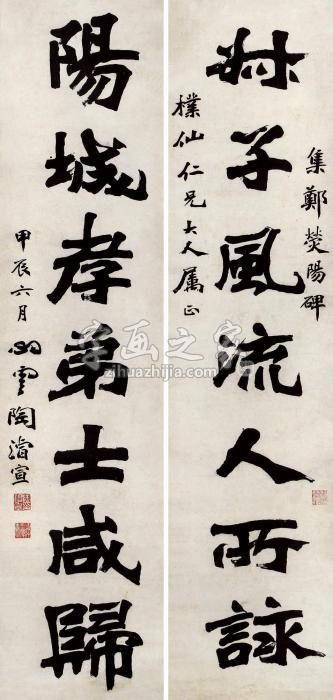 集鄭熒陽碑
叔子風流人所詠
樸仙仁兄大人屬正
陽城孝弟士咸歸
甲辰六月心雲陶濬宣
字画之家
zihuazhijia.com